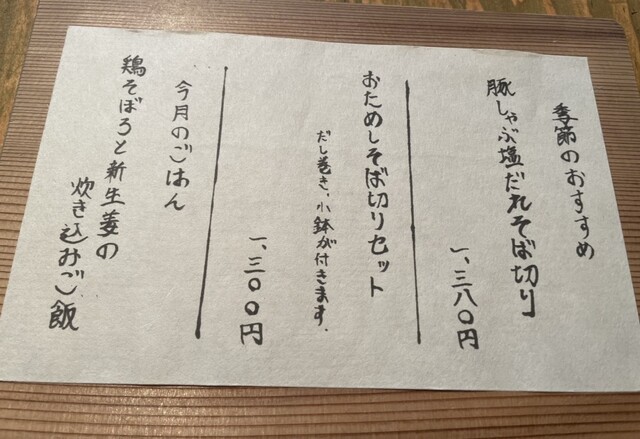 季節のおすすめ
豚しゃぶ塩だれそば切り
一、三八〇円
おためしそば切りセット
だし巻き、小鉢が付きます。
一、三〇〇円
今月のごはん
鶏そぼろと新生姜の
炊き込みご飯